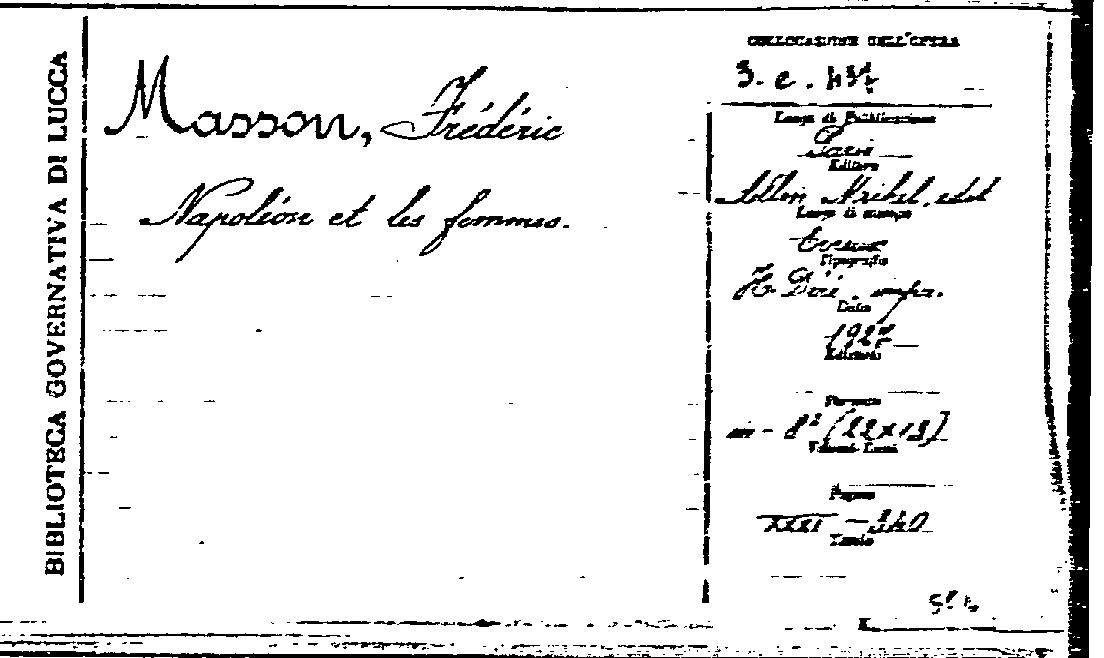 BIBLIOTECA GOVERNATIVA DI LUCCA
Masson, Frédéric
Napoléon et les femmes.
COLLOCAZIONE DELL'OPERA
3. e.
Luogo di Pubblicazione
Paris
Editore
Albin Michel, edit
Luogo di stampa
Tipografia
impr.
Data
1927
Edizione
Formato
in - 8° (22x13)
Volumi
Pagine
XXXI - 340
Tavole